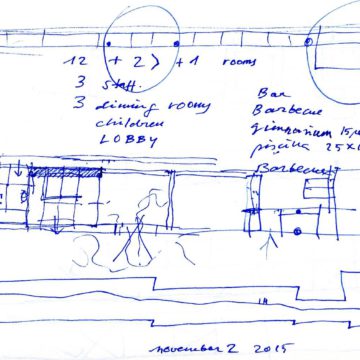 12 + 2 > + 1 rooms
3 Staff.
3 dinning rooms
children
LOBBY
Bar
Barbecue
gimnasium 15
piscina 25 x 1
Barbecue
november 2 2015